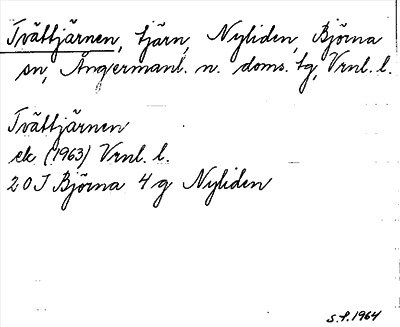 Tvättjärnen, tjärn, Nyliden, Björna
sn, Ångermanl. n. doms. tg, Vrnl. l.
Tvättjärnen
ek (1963) Vrnl. l.
20 I Björna 4 g Nyliden
S.F. 1964